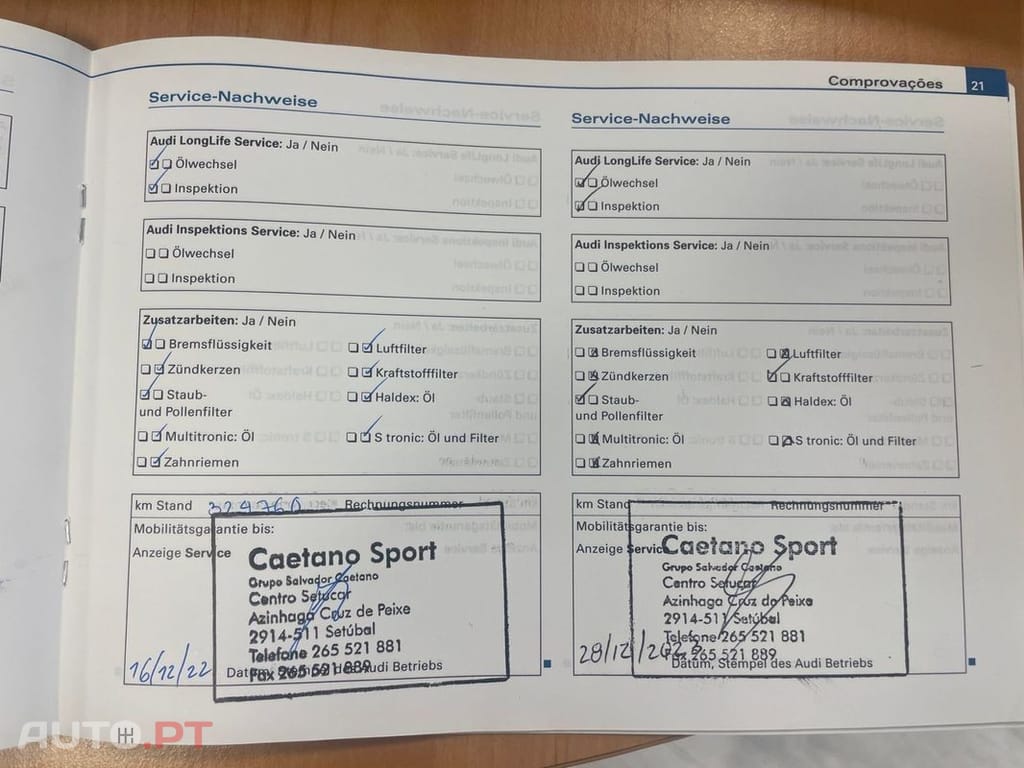 Comprovações 21
Service-Nachweise
Audi LongLife Service: Ja / Nein
Ölwechsel
Inspektion
Audi Inspektions Service: Ja / Nein
Ölwechsel
Inspektion
Zusatzarbeiten: Ja / Nein
Bremsflüssigkeit
Luftfilter
Zündkerzen
Kraftstofffilter
Staub-
und Pollenfilter
Haldex: Öl
Multitronic: Öl
S tronic: Öl und Filter
Zahnriemen
km Stand Rechnungsnummer
Mobilitätsgarantie bis:
Anzeige Service
Caetano Sport
Grupo Salvador Caetano
Centro Setucar
Azinhaga Cruz de Peixe
2914-511 Setúbal
Telefone 265 521 881
Fax 265 521 889
16/12/22
Datum, Stempel des Audi Betriebs
Service-Nachweise
Audi LongLife Service: Ja / Nein
Ölwechsel
Inspektion
Audi Inspektions Service: Ja / Nein
Ölwechsel
Inspektion
Zusatzarbeiten: Ja / Nein
Bremsflüssigkeit
Luftfilter
Zündkerzen
Kraftstofffilter
Staub-
und Pollenfilter
Haldex: Öl
Multitronic: Öl
S tronic: Öl und Filter
Zahnriemen
km Stand Rechnungsnummer
Mobilitätsgarantie bis:
Anzeige Service
Caetano Sport
Grupo Salvador Caetano
Centro Setucar
Azinhaga Cruz de Peixe
2914-511 Setúbal
Telefone 265 521 881
Fax 265 521 889
Datum, Stempel des Audi Betriebs
AUTO.PT